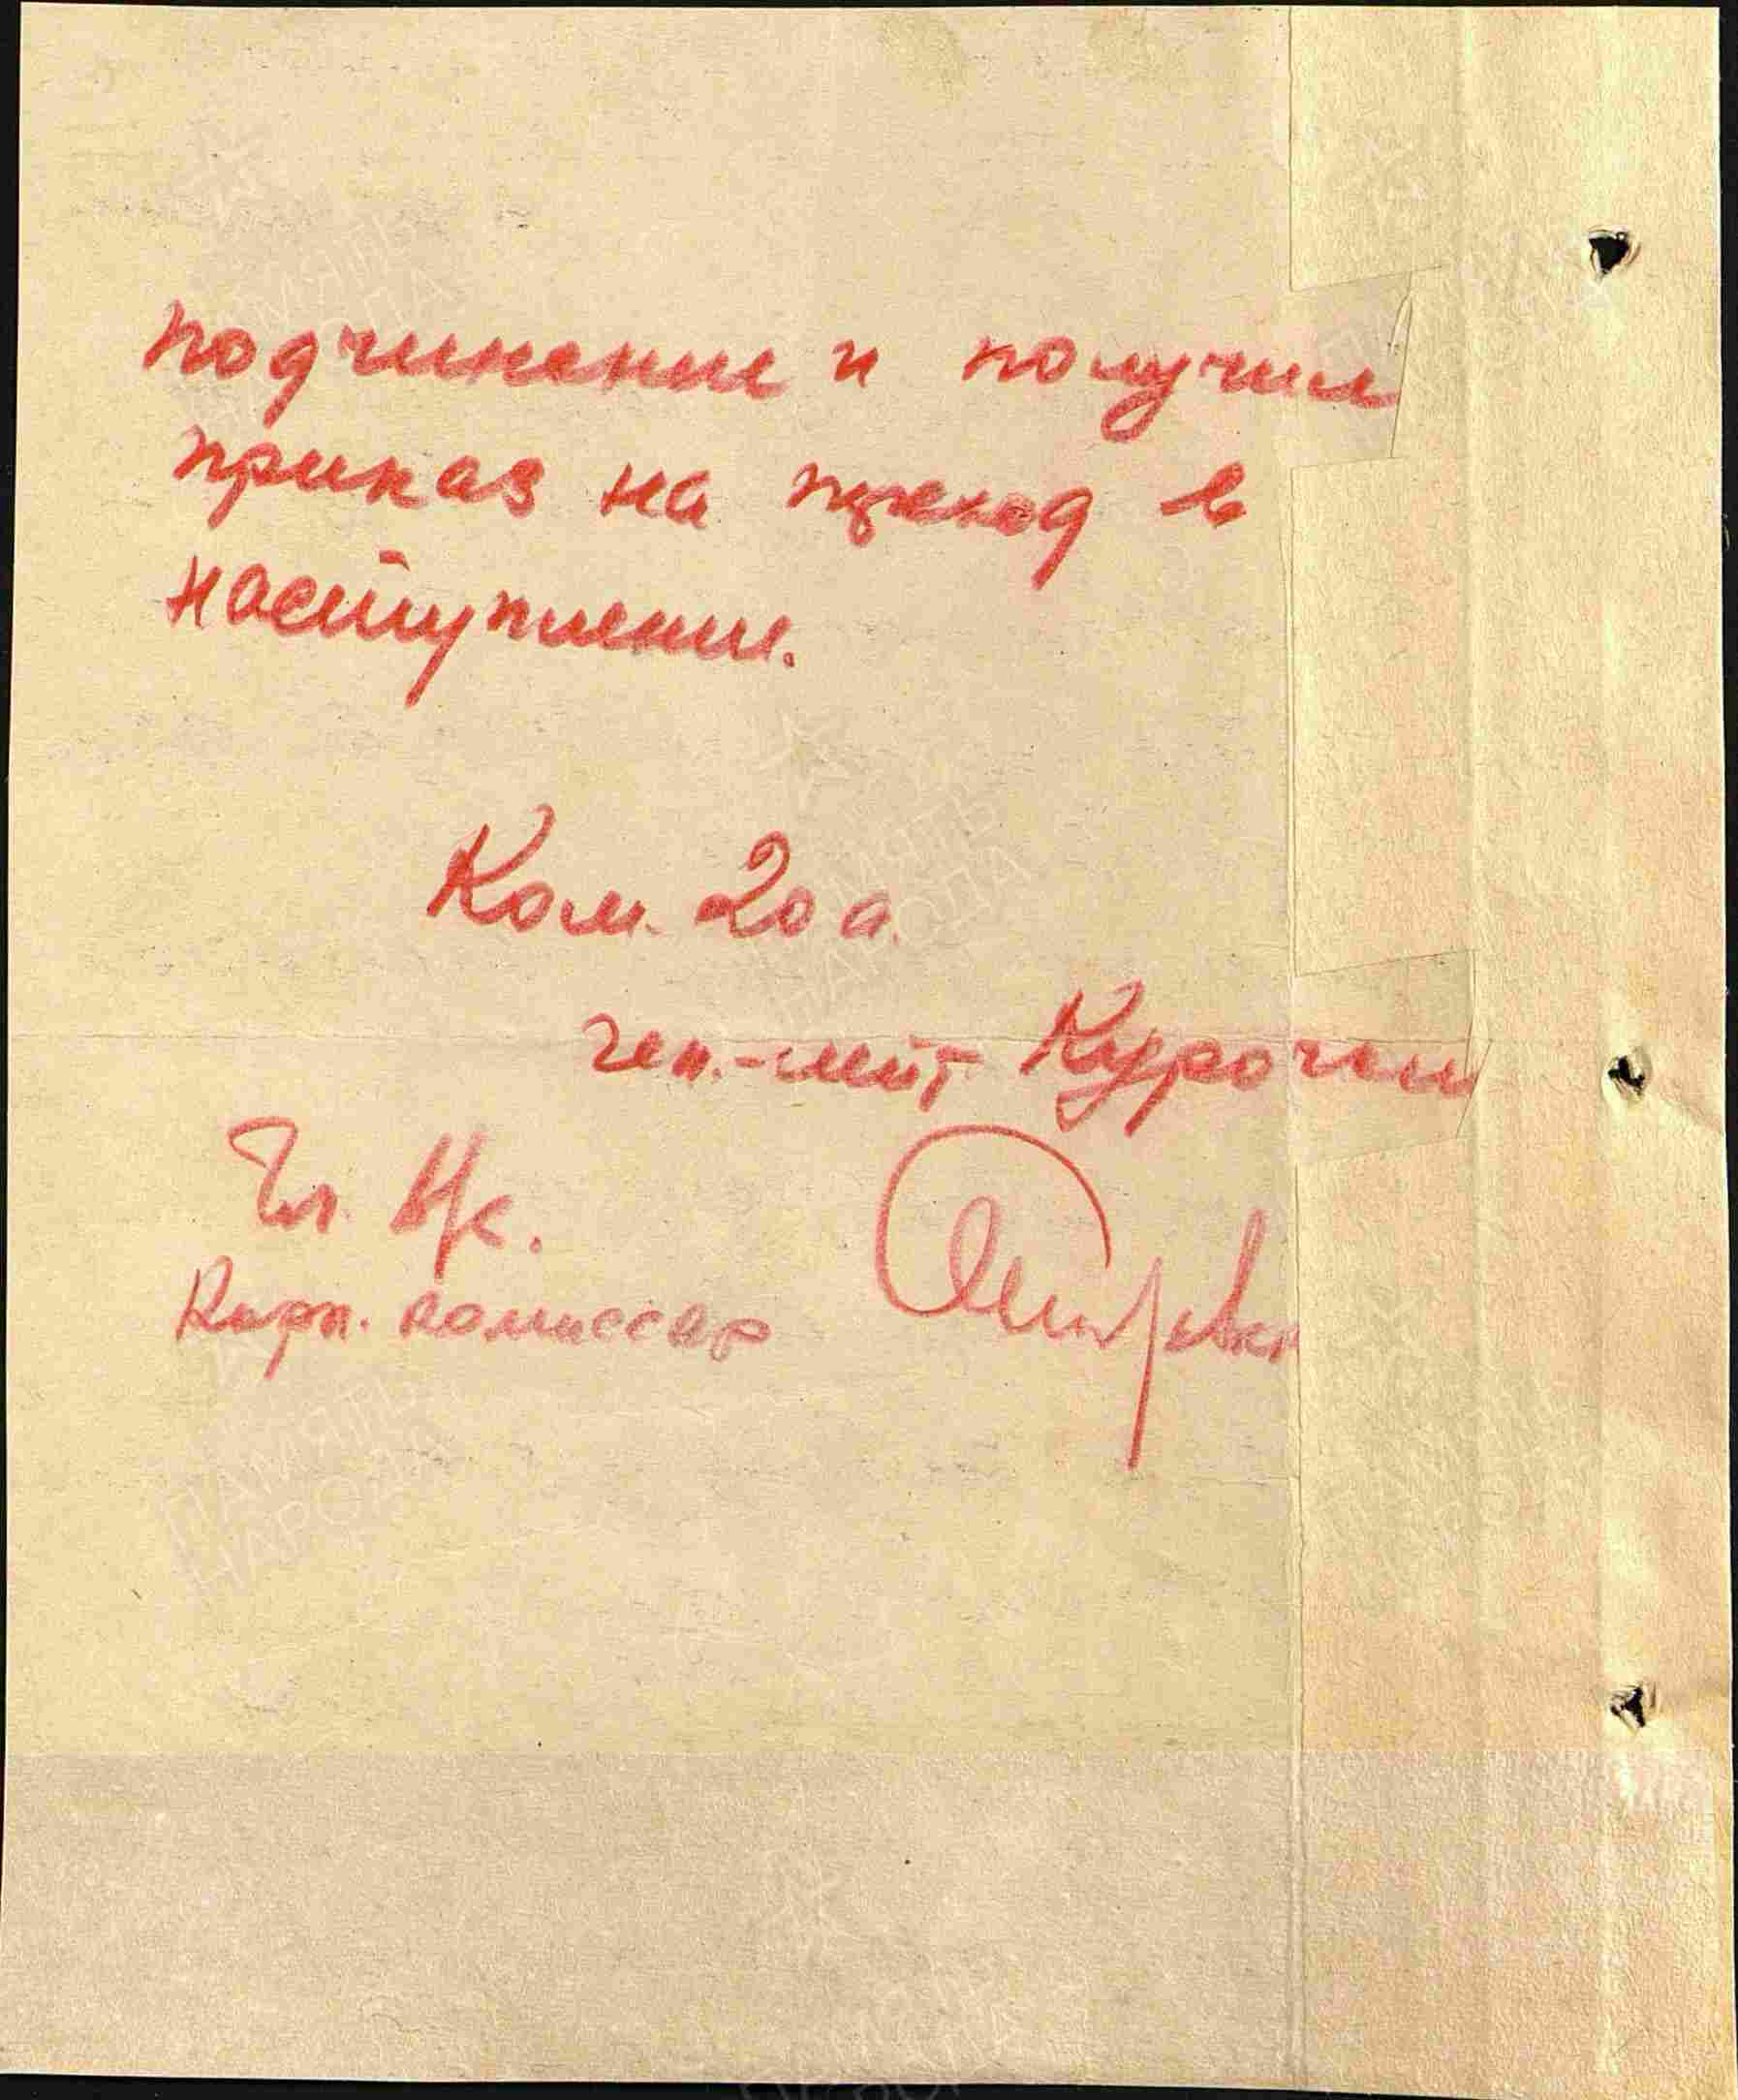 подчинение и получил
приказ на переход в
наступление.
Ком. 20 а.
ген.-лейт. Курочкин
Чл. ВС.
Корп. комиссар
ПАМЯТЬ
НАРОДА